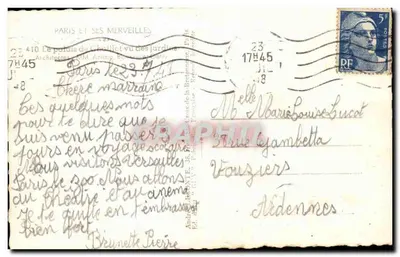 PARIS ET SES MERVEILLES
410 Le palais de Chaillot vu des jardins
Paris le 23.7
Chère marraine
Ces quelques mots
pour te dire que je
suis venu passer
jours en voyage
Nous visitons Versailles
Paris le zoo Nous allons
au théâtre et au cinéma
Je te quitte en t'embrassant
bien fort
Brunette Pierre
23
17H45
5F
RF
Melle Marie Louise Lucot
rue Gambetta
Vouziers
Ardennes